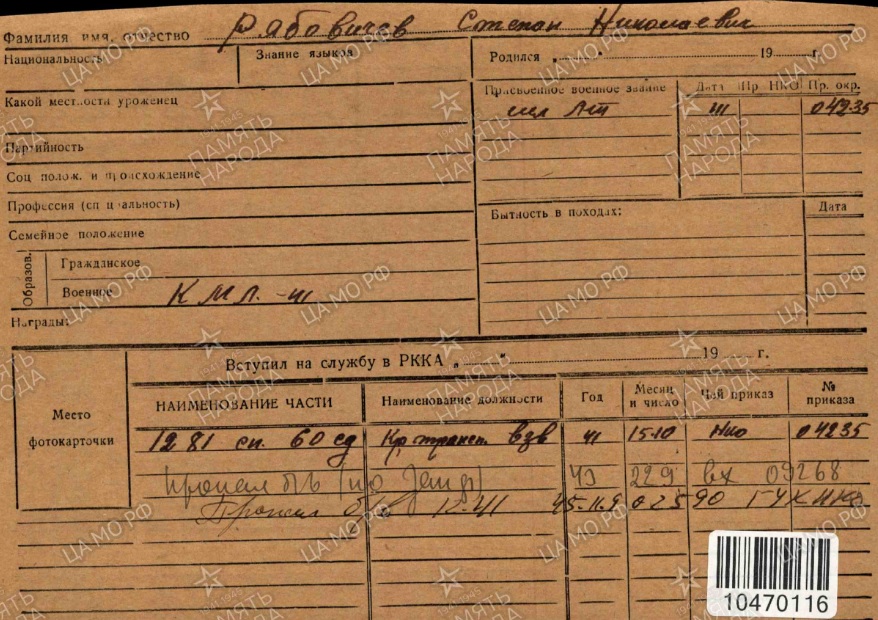 Фамилия имя, отчество Рябовичев Степан Николаевич
Национальность Знание языков Родился „ “ 19 г.
Какой местности уроженец
Присвоенное военное звание Дата Пр НКО Пр. окр.
мл Лт 41 04235
Партийность
Соц полож. и происхождение
Профессия (специальность)
Бытность в походах: Дата
Семейное положение
Образов. Гражданское
Военное КМЛ. -41
Награды:
Вступил на службу в РККА „ “ 19 г.
Место фотокарточки
НАИМЕНОВАНИЕ ЧАСТИ Наименование должности Год Месяц и число Чей приказ № приказа
1281 сп. 60 сд Кр трансп. взв 41 15-10 НКО 04235
пропал б/в 43 229 вх 09268
Пропал б/в 12-41 45-11.9 02590 ГУК НКО
ЦАМО РФ
1941-1945
ПАМЯТЬ НАРОДА
10470116